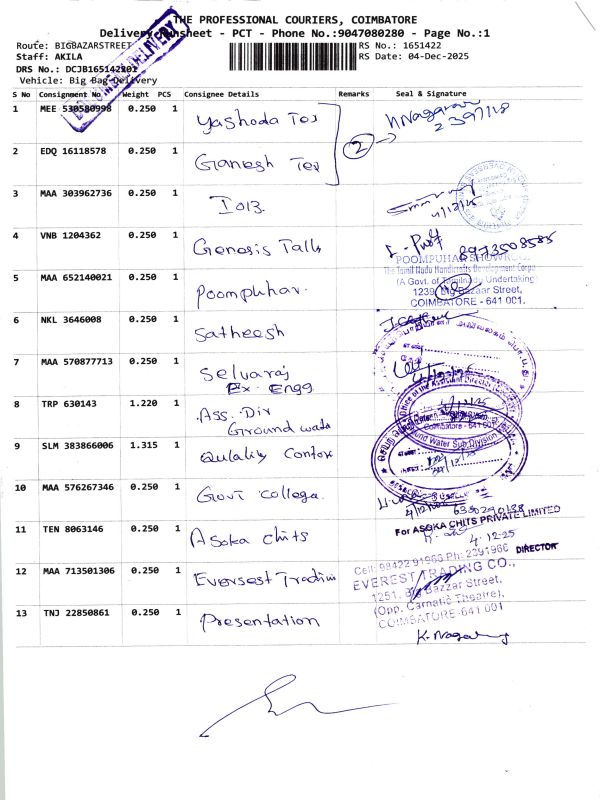 THE PROFESSIONAL COURIERS, COIMBATORE
Delivery Runsheet - PCT - Phone No.:9047080280 - Page No.:1
Route: BIGBAZARSTREET
RS No.: 1651422
Staff: AKILA
RS Date: 04-Dec-2025
DRS No.: DCJB165142201
Vehicle: Big Bag Delivery
S No Consignment No Weight PCS Consignee Details Remarks Seal & Signature
1 MEE 530580998 0.250 1 Yashoda Tex
2 EDQ 16118578 0.250 1 Ganesh Tex
2
3 MAA 303962736 0.250 1 IOB
4/12/25
4 VNB 1204362 0.250 1 Genosis Talls
8973508585
5 MAA 652140021 0.250 1 Poompuhar.
POOMPUHAR SHOWROOM
The Tamil Nadu Handicrafts Development Corpn
(A Govt. of Tamilnadu Undertaking)
1239, Big Bazaar Street,
COIMBATORE - 641 001.
6 NKL 3646008 0.250 1 Satheesh
7 MAA 570877713 0.250 1 Selvaraj
Ex. Engg
8 TRP 630143 1.220 1 Ass. Dir
Ground wate
Office of the Assistant Director
Coimbatore - 641 001
Ground Water Sub Division
9 SLM 383866006 1.315 1 Qulality Contor
10 MAA 576267346 0.250 1 Govt College.
6380290188
11 TEN 8063146 0.250 1 Asoka chits
For ASOKA CHITS PRIVATE LIMITED
4.12-25
DIRECTOR
12 MAA 713501306 0.250 1 Eversest Trading
Cell: 98422 91966 Ph: 2391966
EVEREST TRADING CO.,
1251, Big Bazzar Street,
(Opp. Carnatic Theatre),
COIMBATORE-641 001
13 TNJ 22850861 0.250 1 Presentation